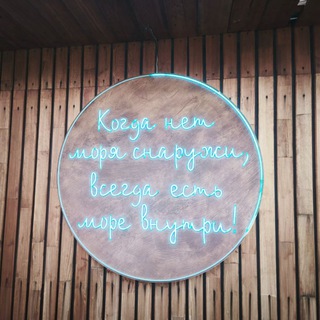 Когда нет
моря снаружи,
всегда есть
море внутри!